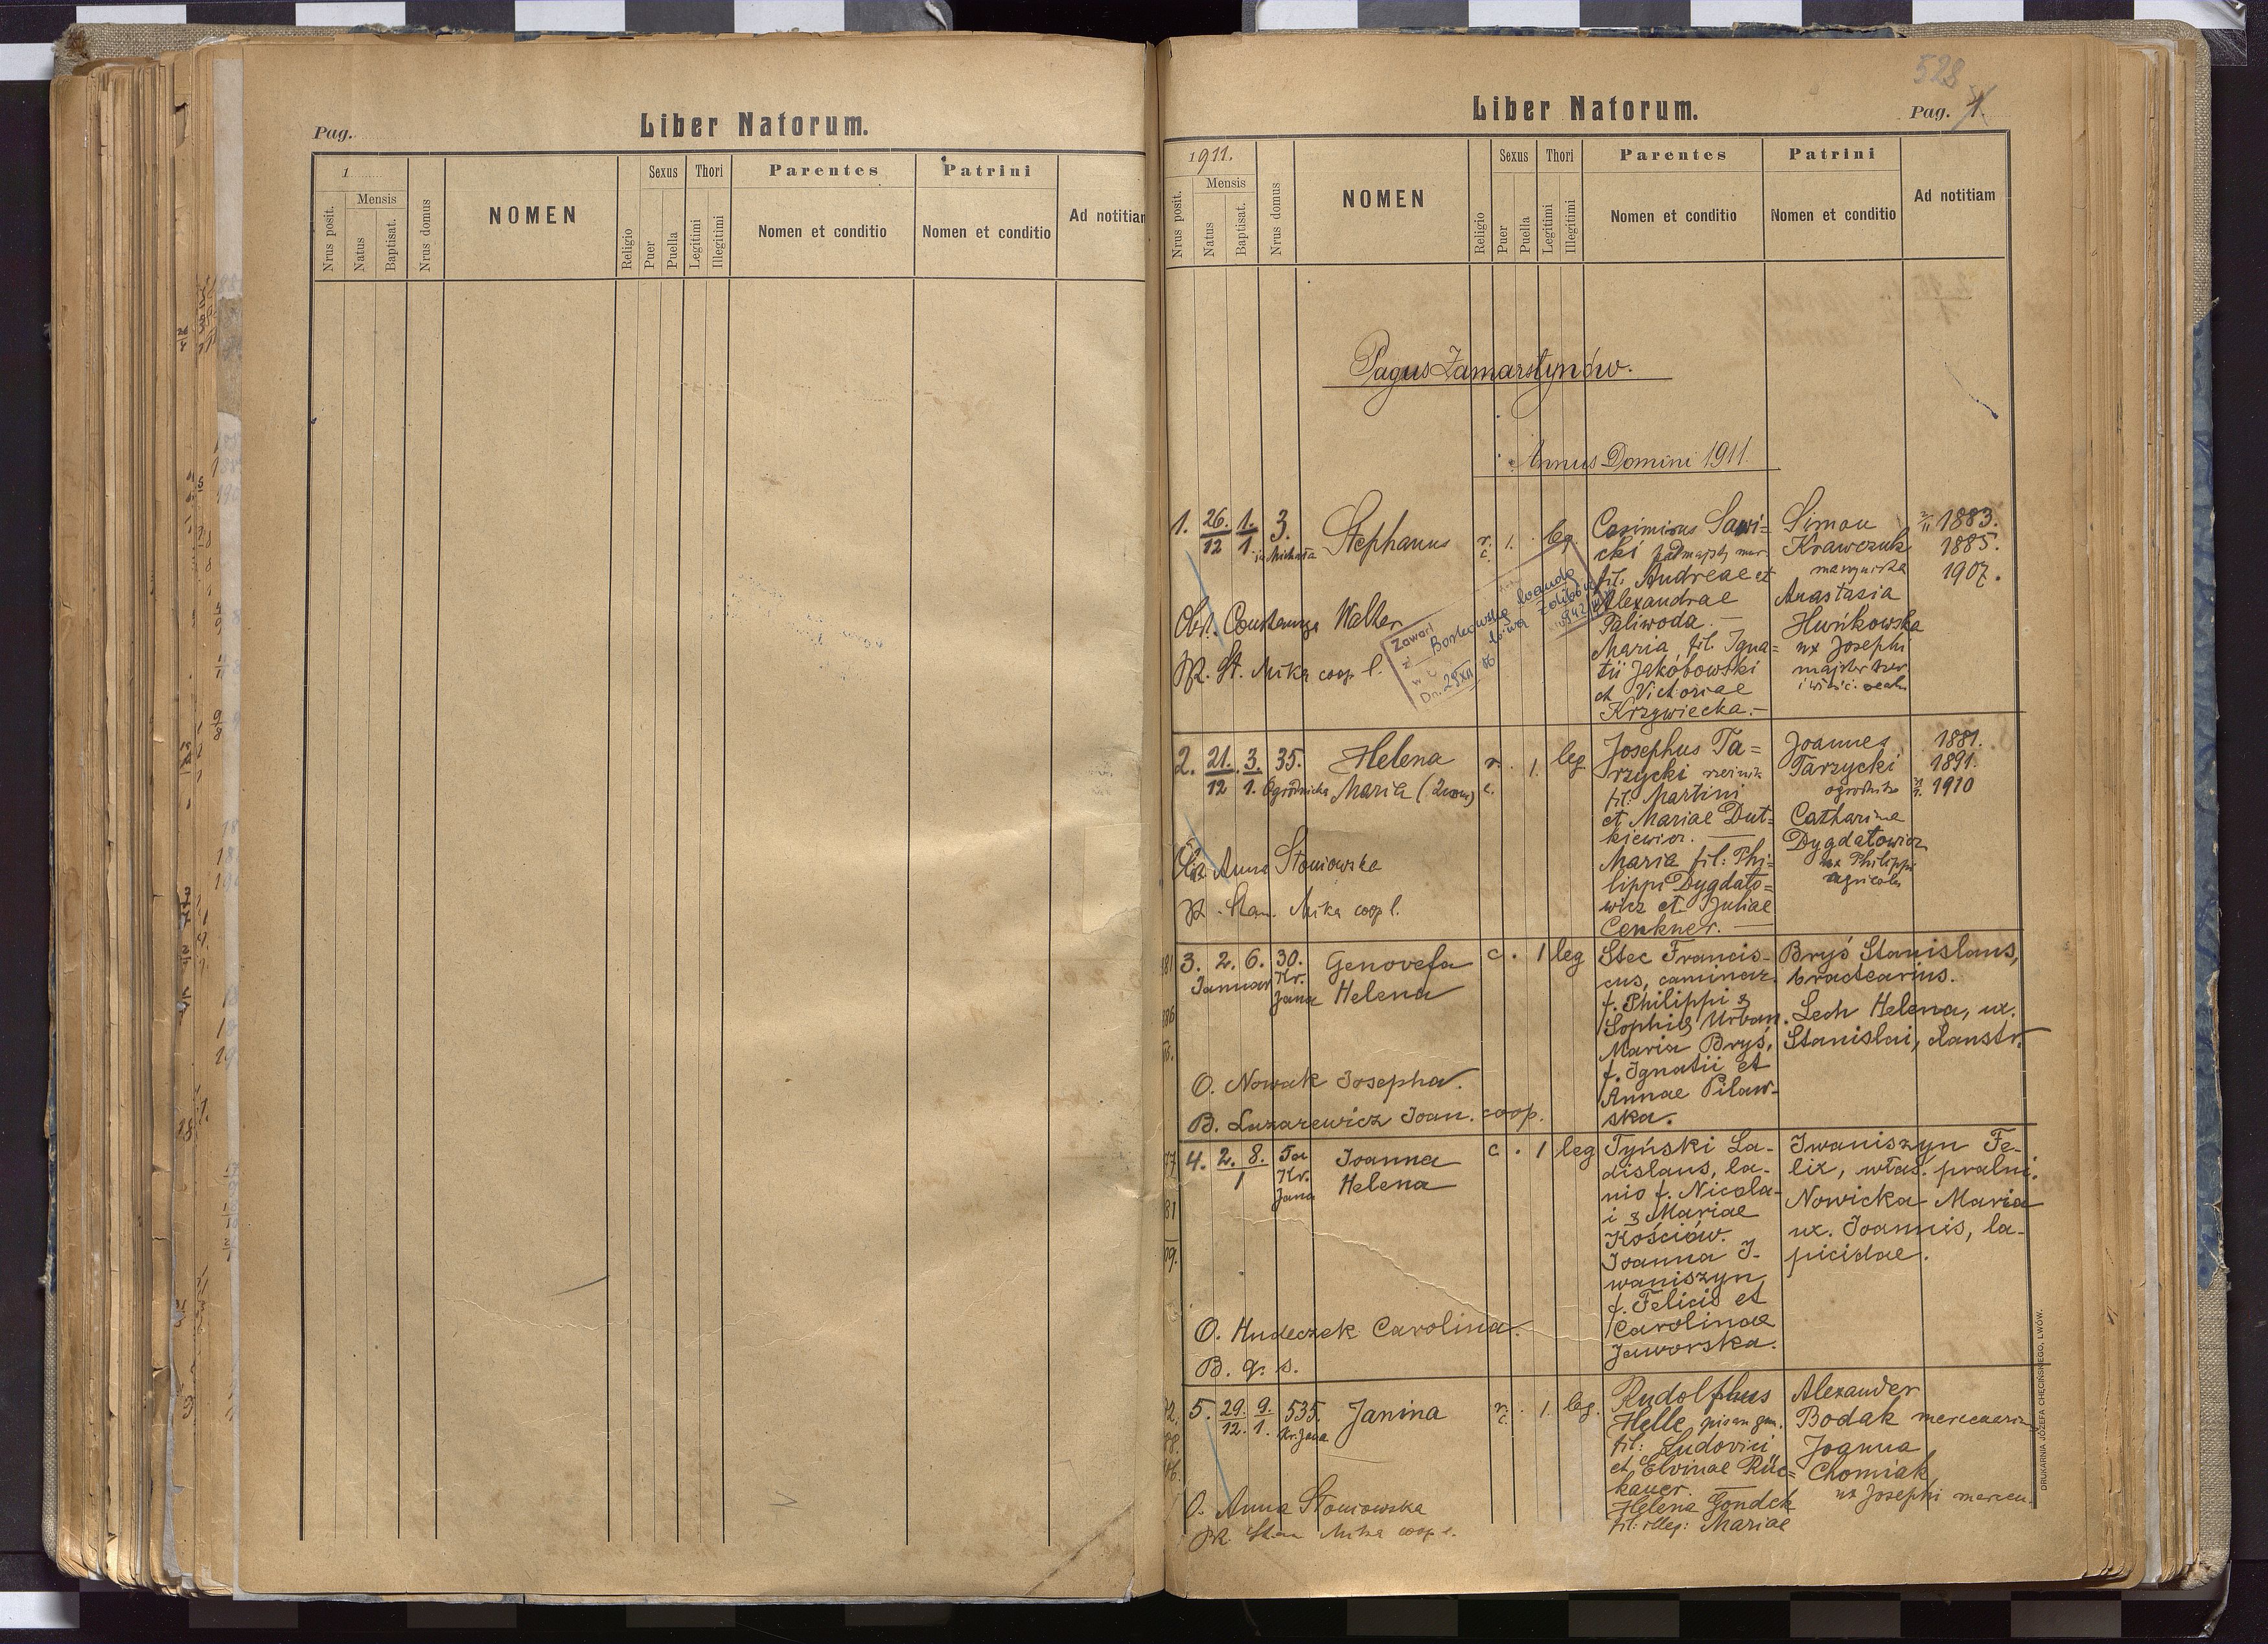 Liber Natorum.
Pag.
1
Mensis
Nrus posit.
Natus
Baptisat.
Nrus domus
NOMEN
Religio
Sexus
Puer
Puella
Thori
Legitimi
Illegitimi
Parentes
Nomen et conditio
Patrini
Nomen et conditio
Ad notitiam
528
Liber Natorum.
Pag. 1.
1911.
Mensis
Nrus posit.
Natus
Baptisat.
Nrus domus
NOMEN
Religio
Sexus
Puer
Puella
Thori
Legitimi
Illegitimi
Parentes
Nomen et conditio
Patrini
Nomen et conditio
Ad notitiam
Pagus Zamarstynów.
Annus Domini 1911.
1. 26/12 1/1 3.
Michała
Stephanus
r. c. 1. leg.
Casimirus Sawi=
cki
fil. Andreae et
Alexandrae
Paliwoda. —
Maria fil. Igna=
tii Jakóbowski
et Victoriae
Krzywiecka. —
Simon
Krawczuk
Anastasia
Huńkowska
ux Josephi
1883.
1885.
1907.
Obst. Constanza Walter
St. Mika coop l.
Zawarł
Dn. 29 XII
2. 21/12 3/1. 35.
Ogrodnicka
Helena
Maria
r. c. 1. leg
Josephus Ta=
rzycki
fil: Martini
et Mariae Dut=
kiewicz. —
Maria fil: Phi=
lippi Dygdało=
wicz et Juliae
Cenkner. —
Joannes
Tarzycki
Catharina
Dygdałowicz
ux Philippi
agricolae
1881.
1891.
1910
Anna Słoniowska
Stan. Mika coop l.
3. 2. 6. 30.
Januar Kr.
Jana
Genovefa
Helena
c. 1 leg
Stec Francis-
cus, caminar.
f. Philippi &
Sophie Urban.
Maria Bryś,
f. Ignatii et
Annae Pilaw-
ska.
Bryś Stanislaus,
bractearius.
Lech Helena, ux.
Stanislai,
O. Nowak Josepha.
B. Lazarewicz Joan. coop.
4. 2. 8. /1
Kr.
Jana
Joanna
Helena
c. 1 leg
Tyński La-
dislaus, la-
nio f. Nicola-
i & Mariae
Kościów.
Joanna I-
waniszyn
f. Felicis et
Carolinae
Jaworska.
Iwaniszyn Fe-
lix, właś. pralni.
Nowicka Maria
ux. Joannis, la-
picidae.
O. Hudeczek Carolina.
B. q. s.
5. 29/12. 9/1. 535.
Kr. Jana
Janina
r. c. 1. leg.
Rudolphus
Helle, pisarz gm.
fil: Ludovici
et Elvinae Rüc=
kauer. —
Helena Gondek
fil: illeg: Mariae
Alexander
Bodak
Joanna
Chomiak
ux Josephi
O. Anna Słoniowska
Stan Mika coop l.
DRUKARNIA JÓZEFA CHĘCIŃSKIEGO, LWÓW.